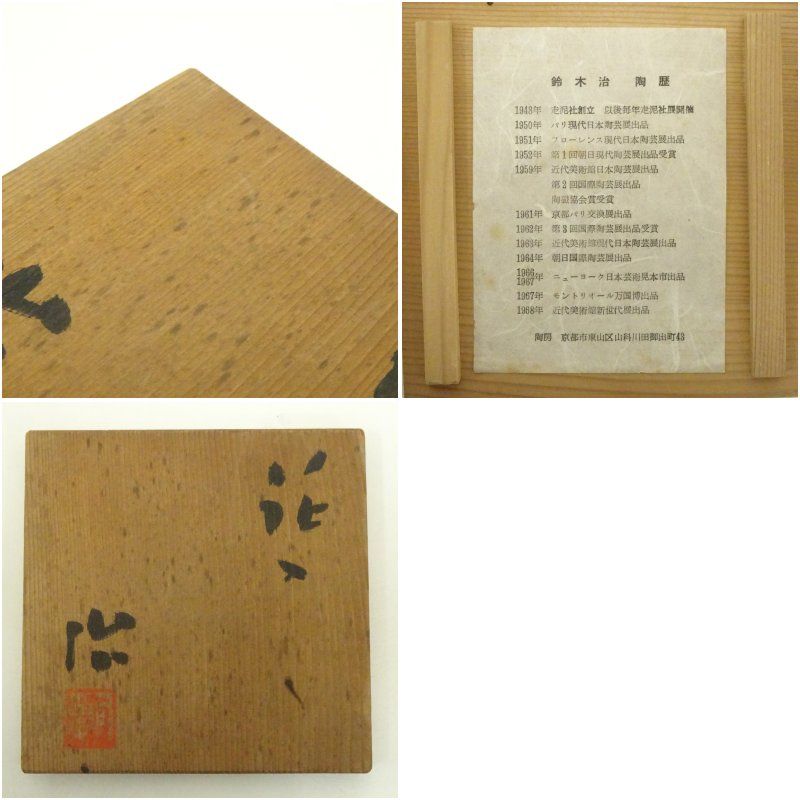 鈴木治 陶歴
1948年 走泥社創立 以後毎年走泥社展開催
1950年 パリ現代日本陶芸展出品
1951年 フローレンス現代日本陶芸展出品
1952年 第1回朝日現代陶芸展出品受賞
1959年 近代美術館日本陶芸展出品
第2回国際陶芸展出品
陶磁協会賞受賞
1961年 京都パリ交換展出品
1962年 第3回国際陶芸展出品受賞
1963年 近代美術館現代日本陶芸展出品
1964年 朝日国際陶芸展出品
1966 1967年 ニューヨーク日本芸術見本市出品
1967年 モントリオール万国博出品
1968年 近代美術館新世代展出品
陶房 京都市東山区山科川田御出町43
治